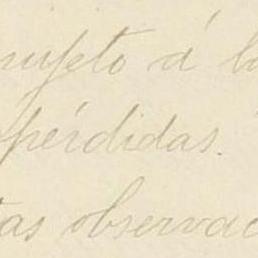 sujeto á la
pérdidas.
tas observac